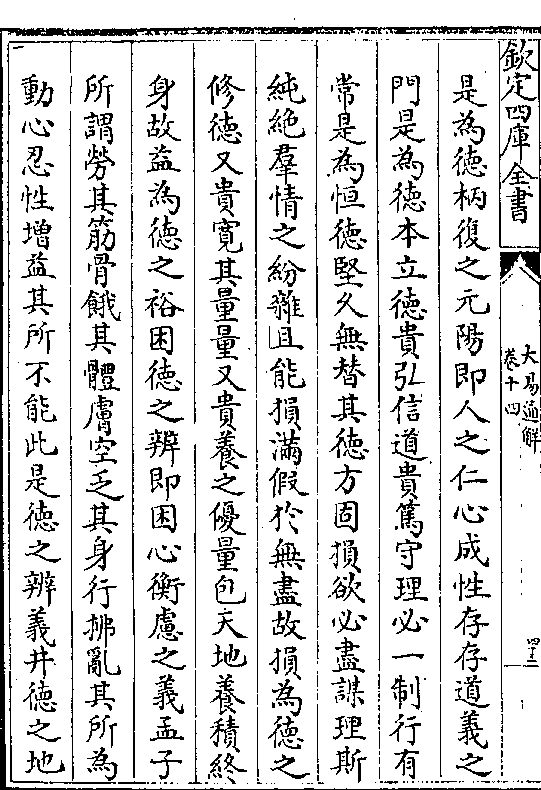 欽定四庫全書
大易通解
卷十四
四十二
是為德柄復之元陽即人之仁心成性存存道義之
門是為德本立德貴弘信道貴篤守理必一制行有
常是為恒德堅久無替其德方固損欲必盡謀理斯
純絶羣情之紛雜且能損滿假於無盡故損為德之
修德又貴寛其量量又貴養之優量包天地養積終
身故益為德之裕困德之辨即困心衡慮之義孟子
所謂勞其筋骨餓其體膚空乏其身行拂亂其所為
動心忍性增益其所不能此是德之辨義井德之地